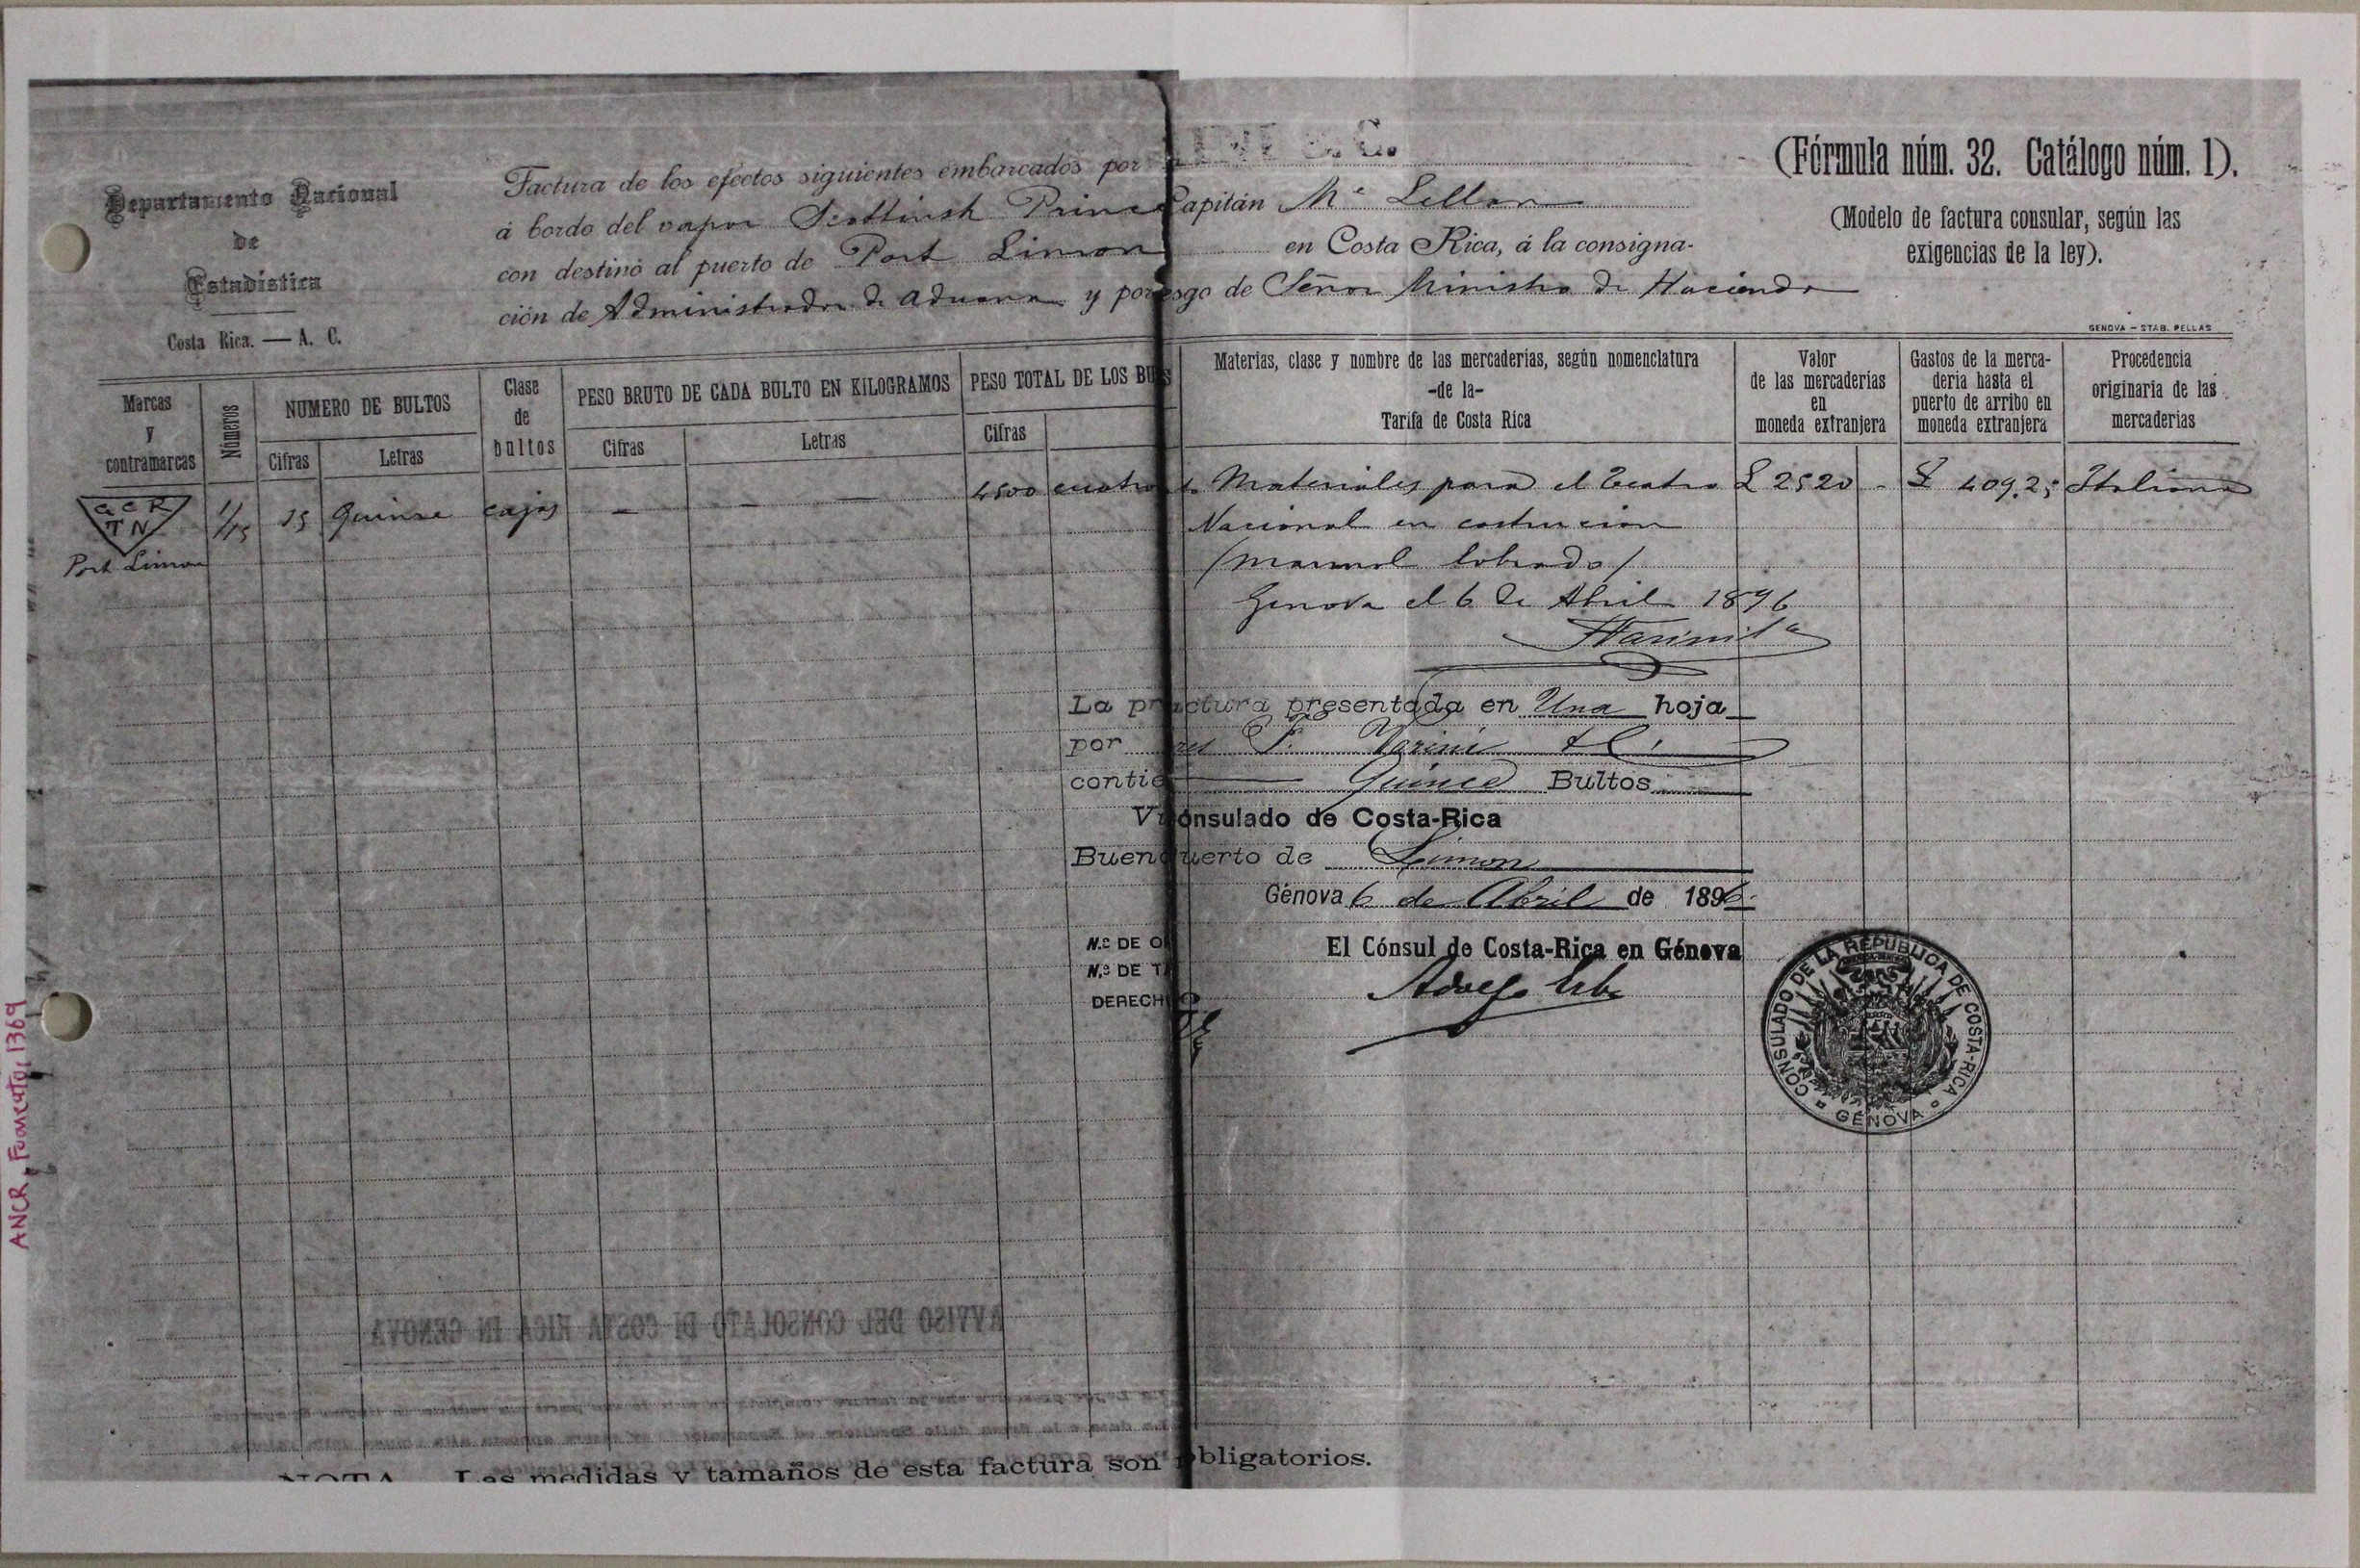 (Fórmula núm. 32. Catálogo núm. 1).
(Modelo de factura consular, según las
exigencias de la ley).
Departamento Nacional
de
Estadística
Costa Rica. — A. C.
Factura de los efectos siguientes embarcados por & C.
á bordo del vapor Scottish Prince Capitán Mc Lellan
con destino al puerto de Port Limon en Costa Rica, á la consigna-
ción de Administrador de aduana y por esgo de Señor Ministro de Hacienda
GENOVA — STAB. PELLAS
Marcas
y
contramarcas
Números
NUMERO DE BULTOS
Cifras
Letras
Clase
de
bultos
PESO BRUTO DE CADA BULTO EN KILOGRAMOS
Cifras
Letras
PESO TOTAL DE LOS BU S
Cifras
Materias, clase y nombre de las mercaderias, según nomenclatura
-de la-
Tarifa de Costa Rica
Valor
de las mercaderias
en
moneda extranjera
Gastos de la merca-
deria hasta el
puerto de arribo en
moneda extranjera
Procedencia
originaria de las
mercaderias
G C R
T N
Port Limon
1/15 15 Quinse cajas — — — 4500 cuatro Materiales para el Teatro £ 2520 - £ 409.25 Italiana
Nacional en costrucion
/marmol lobrado/
Genova el 6 de Abril 1896
La pr ctura presentada en Una hoja
por F. Varini & C.
contie Quince Bultos
V onsulado de Costa-Rica
Buen uerto de Limon
Génova 6 de Abril de 1896
N.º DE O
N.º DE T
DERECH
El Cónsul de Costa-Rica en Génova
CONSULADO DE LA REPUBLICA DE COSTA-RICA
GENOVA
AVVISO DEL CONSOLATO DI COSTA RICA IN GENOVA
NOTA Las medidas y tamaños de esta factura son obligatorios.
ANCR, Fomento, 1369